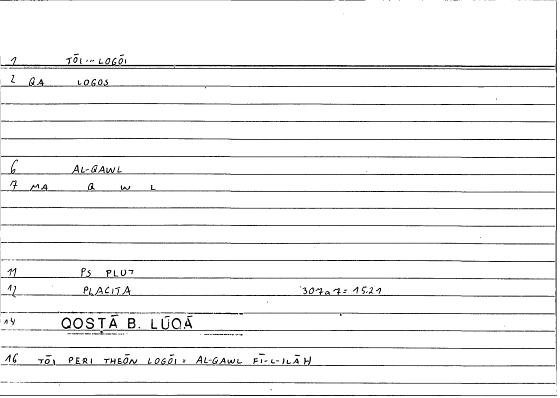 1 TŌI ... LOGŌI
2 QA LOGOS
6 AL-QAWL
7 MA Q W L
11 PS PLUT
12 PLACITA 307a7 = 15.21
14 QOSṬĀ B. LŪQĀ
16 TŌI PERI THEŌN LOGŌI = AL-QAWL FĪ-L-ILĀH